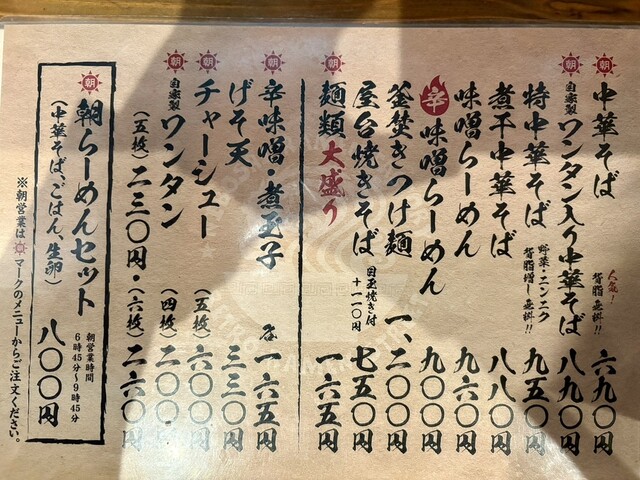 朝 中華そば 人気! 背脂無料!! 六九〇円
朝 自家製ワンタン入り中華そば 八九〇円
特中華そば 野菜・ニンニク 背脂増し無料!! 九五〇円
煮干中華そば 八八〇円
味噌らーめん 九六〇円
辛 味噌らーめん 九〇〇円
釜焚きつけ麺 一、二〇〇円
屋台焼きそば 目玉焼き付+一一〇円 七五〇円
朝 麺類大盛り 一六五円
朝 辛味噌・煮玉子 各一六五円
げそ天 三三〇円
朝 チャーシュー (五枚) 六〇〇円
朝 自家製ワンタン (四枚) 二〇〇円
(五枚)二三〇円・(六枚)二六〇円
朝 朝らーめんセット 朝営業時間 6時45分~9時45分
(中華そば、ごはん、生卵) 八〇〇円
※朝営業は朝マークのメニューからご注文ください。